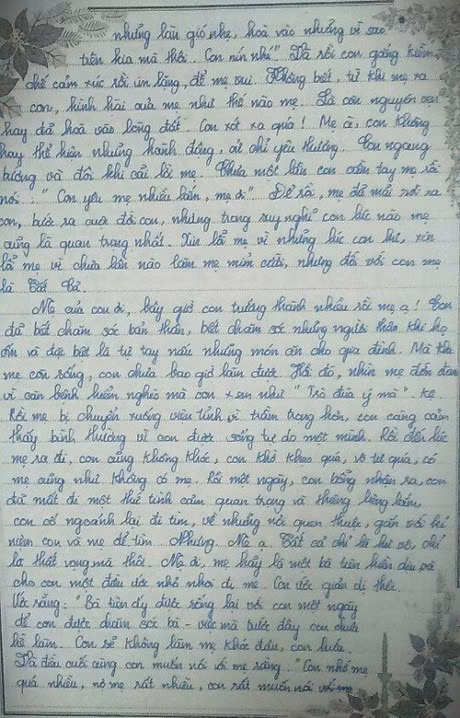 những làn gió nhẹ, hoà vào những vì sao
trên kia mà thôi. Con nín nhé" Và rồi con gắng kiềm
chế cảm xúc rồi im lặng, để mẹ vui. Không biết, từ khi mẹ xa
con, hình hài của mẹ như thế nào mẹ. Là còn nguyên vẹn
hay đã hoà vào lòng đất. Con xót xa quá! Mẹ à, con không
hay thể hiện những hành động, cử chỉ yêu thương. Con ngang
bướng và đôi khi cãi lời mẹ. Chưa một lần con cầm tay mẹ rồi
nói: "Con yêu mẹ nhiều lắm, mẹ ơi" Để rồi, mẹ đã mãi rời xa
con, bước ra cuộc đời con, nhưng trong suy nghĩ con lúc nào mẹ
cũng là quan trọng nhất. Xin lỗi mẹ vì những lúc con hư, xin
lỗi mẹ vì chưa lần nào làm mẹ mỉm cười, nhưng đối với con mẹ
là Tất Cả.
Mẹ của con ơi, bây giờ con trưởng thành nhiều rồi mẹ ạ! Con
đã biết chăm sóc bản thân, biết chăm sóc những người thân khi họ
ốm và đặc biệt là tự tay nấu những món ăn cho gia đình. Mà khi
mẹ còn sống, con chưa bao giờ làm được. Hồi đó, nhìn mẹ đớn đau
vì căn bệnh hiểm nghèo mà con xem như "Trò đùa ý mà".
Rồi mẹ bị chuyển xuống viện tỉnh vì trầm trọng hơn, con càng cảm
thấy bình thường vì con được sống tự do một mình. Rồi đến lúc
mẹ ra đi, con cũng không khóc, con khờ khạo quá, vô tư quá, có
mẹ cũng như không có mẹ. Rồi một ngày, con bỗng nhận ra, con
đã mất đi một thứ tình cảm quan trọng và thiêng liêng lắm.
con cố ngoảnh lại đi tìm, về những nơi quen thuộc, gắn với kỉ
niệm con và mẹ để tìm. Nhưng. Mẹ ạ. Tất cả chỉ là hư vô, chỉ
là thất vọng mà thôi. Mẹ ơi, mẹ hãy là một bà tiên hiền dịu và
cho con một điều ước nhỏ nhoi đi mẹ. Con ước giản dị thôi.
Ước rằng: "Bà tiên ấy được sống lại với con một ngày
để con được chăm sóc bà - việc mà trước đây con chưa
hề làm. Con sẽ không làm mẹ khóc đâu, con hứa.
Và đến cuối cùng con muốn nói với mẹ rằng.. "Con nhớ mẹ
quá nhiều, nợ mẹ rất nhiều, con rất muốn nói với mẹ